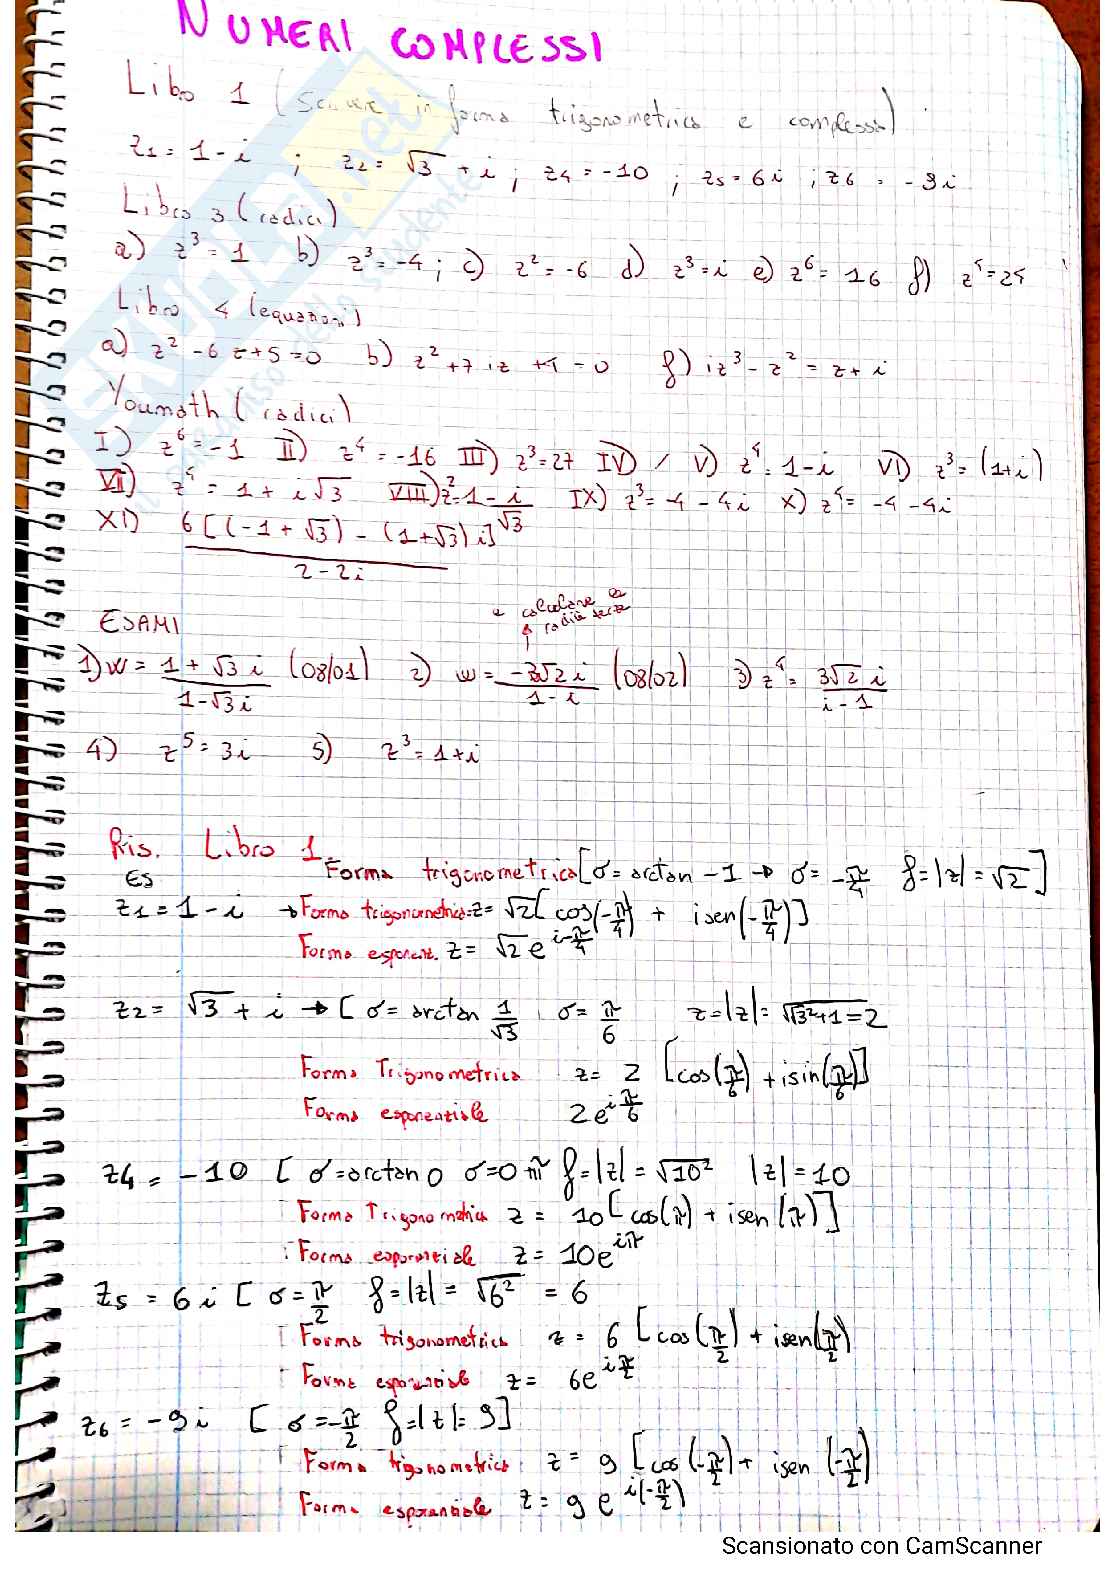 NUMERI COMPLESSI
Libro 1 (scrivere in forma trigonometrica e complessa)
z1 = 1 - i ; z2 = √3 + i ; z4 = -10 ; z5 = 6i ; z6 = -9i
Libro 3 (radici)
a) z³ = 1 b) z³ = -4 ; c) z² = -6 d) z³ = i e) z⁶ = 16 f) z⁴ = 24
Libro 4 (equazioni)
a) z² - 6z + 5 = 0 b) z² + 7iz + 1 = 0 f) iz³ - z² = z + i
Youmath (radici)
I) z⁶ = -1 II) z⁴ = -16 III) z³ = 27 IV) / V) z⁴ = 1 - i VI) z³ = (1+i)
VII) z⁴ = 1 + i√3 VIII) z² = 1 - i/√3 IX) z³ = -4 - 4i X) z⁴ = -4 - 4i
XI) 6[(-1 + √3) - (1+√3)i] / 2 - 2i
ESAMI
e calcolare le radici terze
1) w = 1 + √3 i / 1 - √3 i (08/01) 2) w = -3√2 i / 1 - i (08/02) 3) z⁴ = 3√2 i / i - 1
4) z⁵ = 3i 5) z³ = 1 + i
Ris. Libro 1
Forma trigonometrica [σ = arctan -1 → σ = -π/4 ρ = |z| = √2]
ES
z1 = 1 - i → Forma trigonometrica z = √2[cos(-π/4) + isen(-π/4)]
Forma esponent. z = √2 e^{i-π/4}
z2 = √3 + i → [σ = arctan 1/√3 σ = π/6 z = |z| = √(√3² + 1) = 2
Forma Trigonometrica z = 2 [cos(π/6) + isin(π/6)]
Forma esponenziale 2e^{iπ/6}
z4 = -10 [σ = arctan 0 σ = 0 π ρ = |z| = √10² |z| = 10
Forma Trigonometrica z = 10[cos(π) + isen(π)]
Forma esponenziale z = 10e^{iπ}
z5 = 6i [σ = π/2 ρ = |z| = √6² = 6
Forma trigonometrica z = 6 [cos(π/2) + isen(π/2)
Forma esponenziale z = 6e^{iπ/2}
z6 = -9i [σ = -π/2 ρ = |z| = 9]
Forma trigonometrica z = 9 [cos(-π/2) + isen(-π/2)
Forma esponenziale z = 9 e^{i(-π/2)}
Scansionato con CamScanner